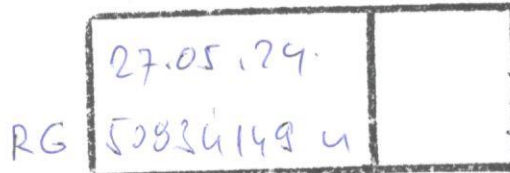 27.05.24.
RG 50934149 u